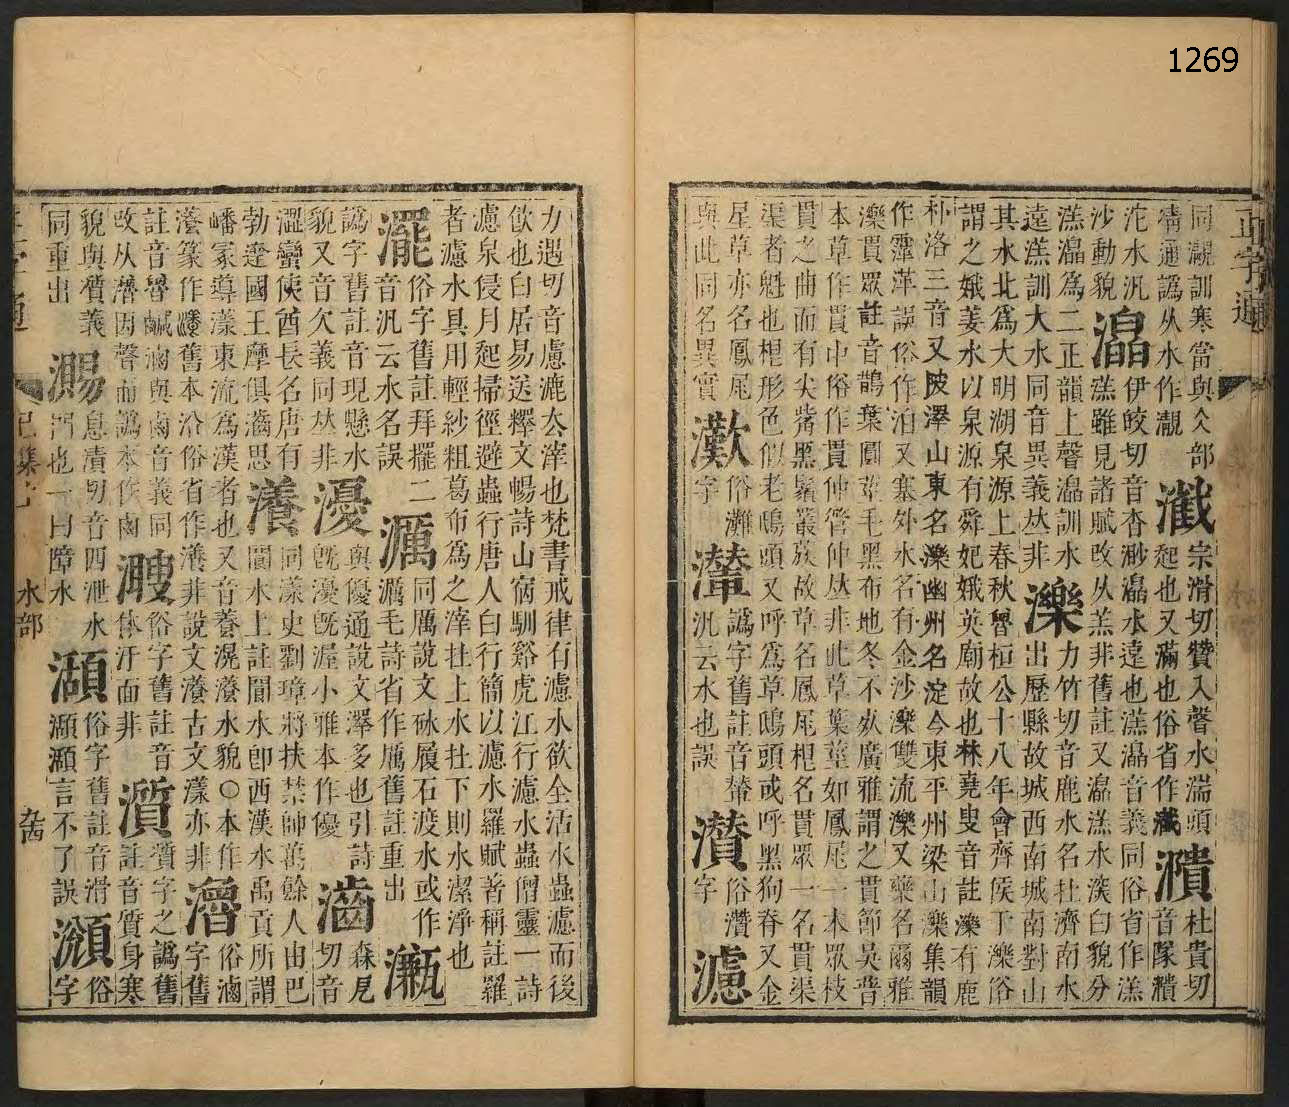 1269
正字通
同㶓訓寒當與仌部
精通譌从水作靚 㵶 宗滑切贊入聲水湍頭 㶇 杜貴切
起也又滿也俗省作 音隊
沱水汎 伊皎切音杳渺 水遠也 音義同俗省作
沙動貌 㴞 雖見諸賦改从羔非舊註又 水深白貌分
為二正韻上聲 訓水 濼 力竹切音鹿水名在濟南水
遠 訓大水同音異義𠀤非 出歷縣故城西南城南對山
其水北爲大明湖泉源上春秋魯桓公十八年會齊侯于濼俗
謂之娥姜水以泉源有舜妃娥英廟故也林堯叟音註濼有鹿
朴洛三音又陂澤山東名濼幽州名淀今東平州梁山濼集韻
作 萍誤俗作泊又塞外水名有金沙濼雙流濼又藥名爾雅
濼貫眾註音鵲葉圓莖毛黑布地冬不死廣雅謂之貫節吳普
本草作貫中俗作貫仲管仲𠀤非此草葉莖如鳳尾一本眾枝
貫之曲而有尖觜黑鬚叢族故草名鳳尾根名貫眾一名貫渠
渠者魁也根形色似老鴟頭又呼爲草鴟頭或呼黑狗脊又金
星草亦名鳳尾 俗灘 譌字舊註音 俗瓚
與此同名異實 灘 字 汎云水也誤 濽 字 濾
力遇切音慮漉去滓也梵書戒律有濾水欲全活水蟲濾而後
飲也白居易送釋文暢詩山宿馴谿虎江行濾水蟲僧靈一詩
濾泉侵月起掃徑避蟲行唐人白行簡以濾水羅賦著稱註羅
者濾水具用輕紗粗葛布爲之滓在上水在下則水潔淨也
㵺 俗字舊註拜擺二 濿 同厲說文砅履石渡水或作
音汎云水名誤 濿毛詩省作厲舊註重出 㼾
譌字舊註音現懸水 瀀 與優通說文澤多也引詩 森見
貌又音欠義同𠀤非 既瀀既渥小雅本作優 㴙 切音
澀蠻俠酋長名唐有 瀁 同漾史劉璋將扶禁帥萬餘人由巴
勃達國王摩俱 思 閬水上註閬水即西漢水禹貢所謂
嶓冢導漾東流爲漢者也又音養滉瀁水貌○本作 俗滷
瀁篆作 舊本沿俗省作瀁非說文瀁古文漾亦非 字舊
註音魯鹹滷與鹵音義同 俗字舊註音 濻字之譌舊
改从 因聲而譌本作鹵 㵩 体汗而非 濻 註音質身寒
貌與 義 息漬切音四泄水 俗字舊註音滑 俗
同重出 㵝 門也一曰障水 㶀 瀕 言不了誤 瀕 字
巳集
水部